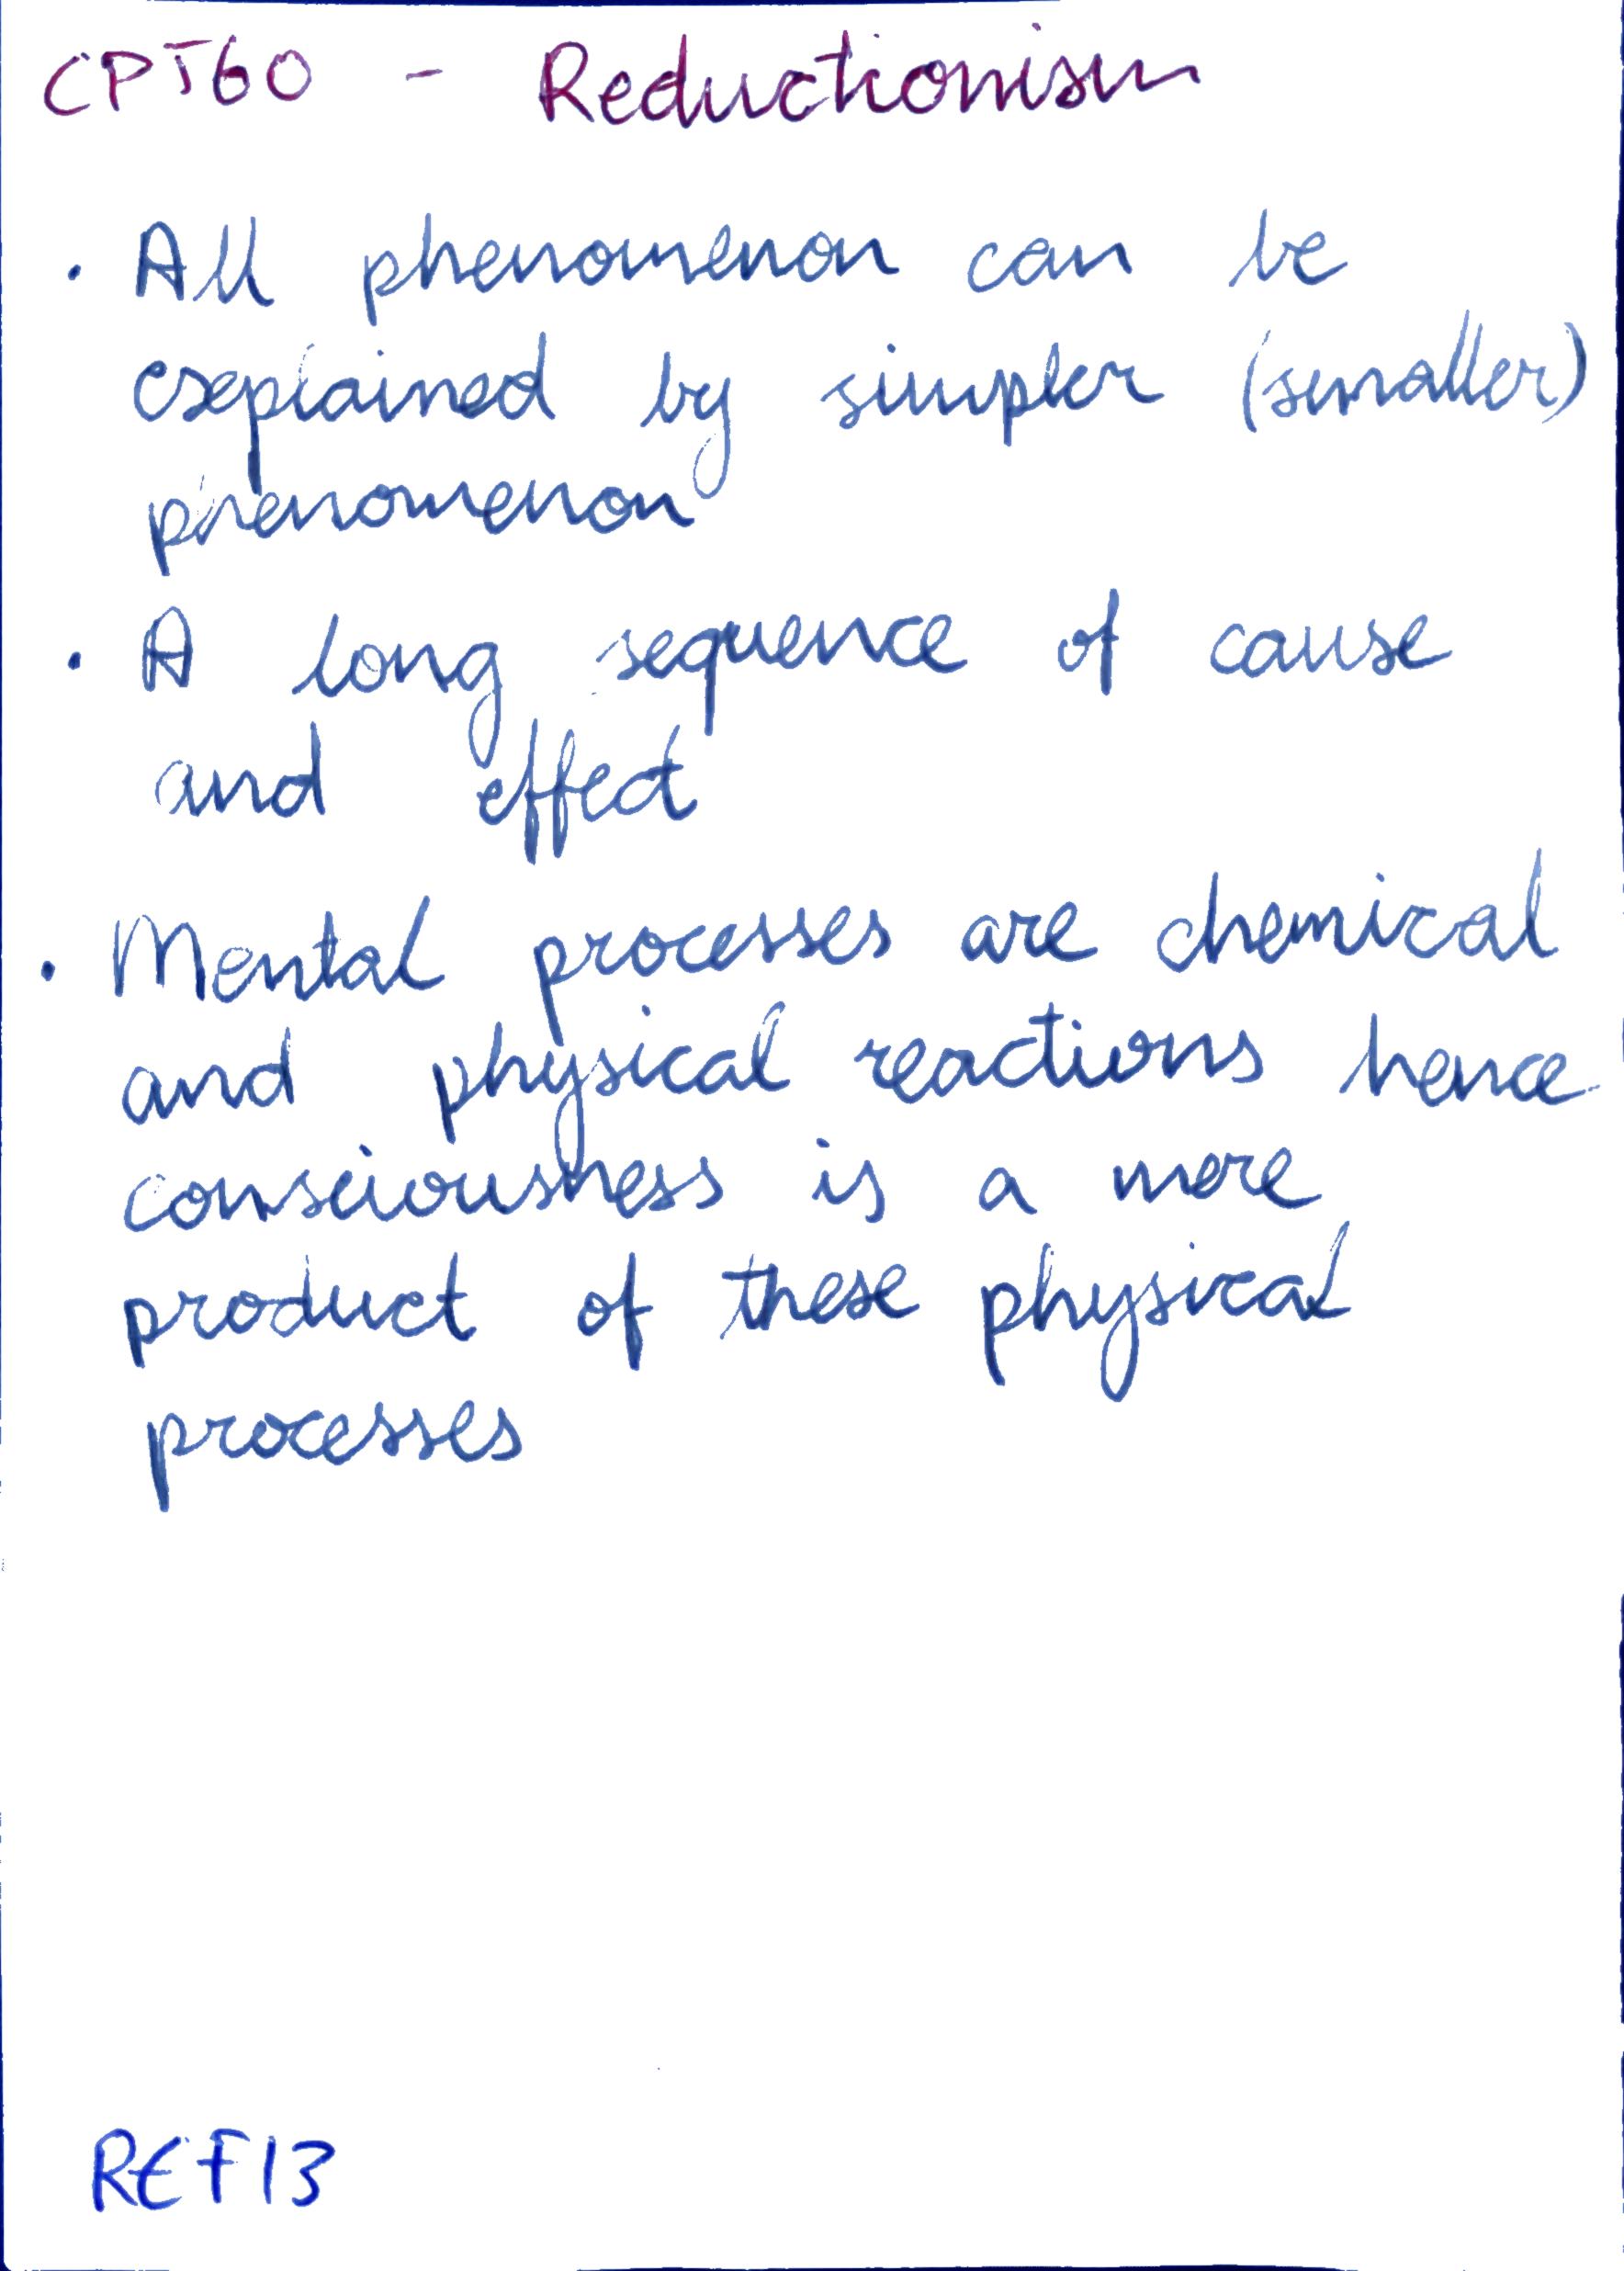 CPT60 - Reductionism
· All phenomenon can be
explained by simpler (smaller)
phenomenon
· A long sequence of cause
and effect
· Mental processes are chemical
and physical reactions hence
consciousness is a mere
product of these physical
processes
REF13